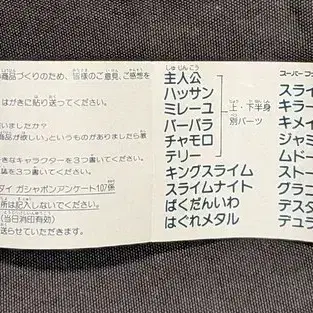 商品づくりのため、皆様のご意見、ご感想を
はがきに貼り送ってください。
いましたか？
商品が欲しい」というものがありましたら教
きなキャラクターを3つ書いてください。
を3つ書いてください。
ダイ ガシャポンアンケート107係
所は記入しないでください。
（当日消印有効）
送らせていただきます。
しゅじんこう
主人公
ハッサン
ミレーユ
バーバラ
チャモロ
テリー
上・下半身
別パーツ
キングスライム
スライムナイト
ばくだんいわ
はぐれメタル
スーパーファ
スライ
キラー
キメイ
ジャミ
ムドー
ストー
グラコ
デスタ
デュラ